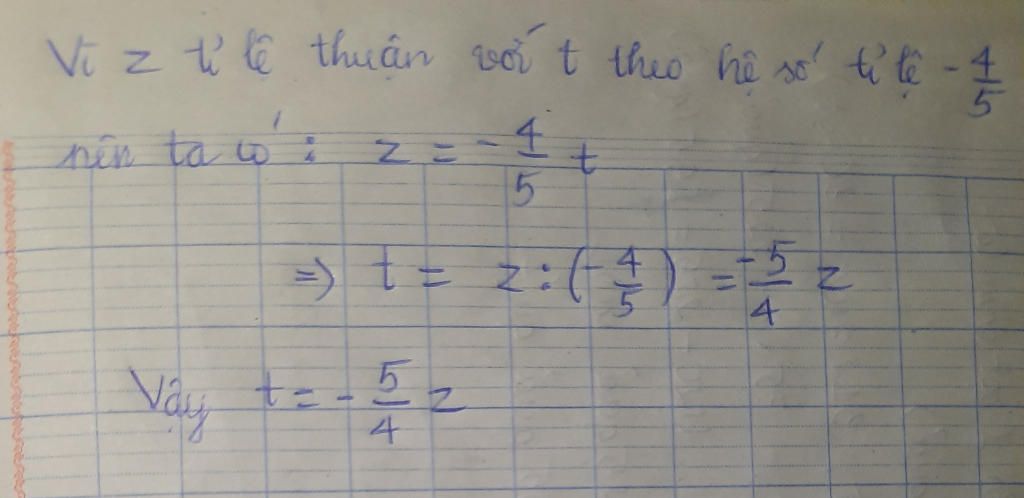 Vì z tỉ lệ thuận với t theo hệ số tỉ lệ -4/5
nên ta có : z = -4/5 t
=> t = z : (-4/5) = -5/4 z
Vậy t = -5/4 z